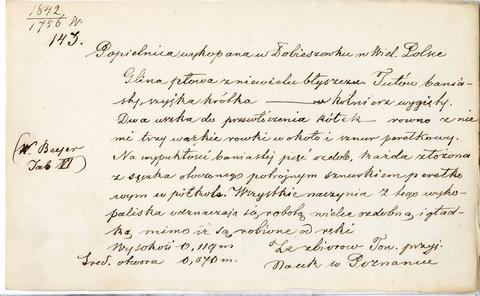 1842
1756 W.
143.
Popielnica wykopana w Dobieszewku w Wiel. Polsce
Glina płowa z niewielu błyszczu Tułów bania-
sty, szyjka krótka — kołnierz wygięty.
Dwa uszka do przewleczenia kółek — równo z nie
mi trzy wązkie rowki w około i sznur perełkowy.
(W Beyer
Tab XI)
Na wypukłości baniastej pięć ozdob, każda złożona
z sęczka otoczonego potrójnym sznurkiem perełko
wym w półkole. Wszystkie naczynia z tego wyko-
paliska odznaczają się robotą wielce ozdobną i gład-
ką, mimo iż są robione od ręki
Wysokość 0,119m
Śred. otworu 0,070 m.
Ze zbiorów Tow. przyj.
Nauk w Poznaniu